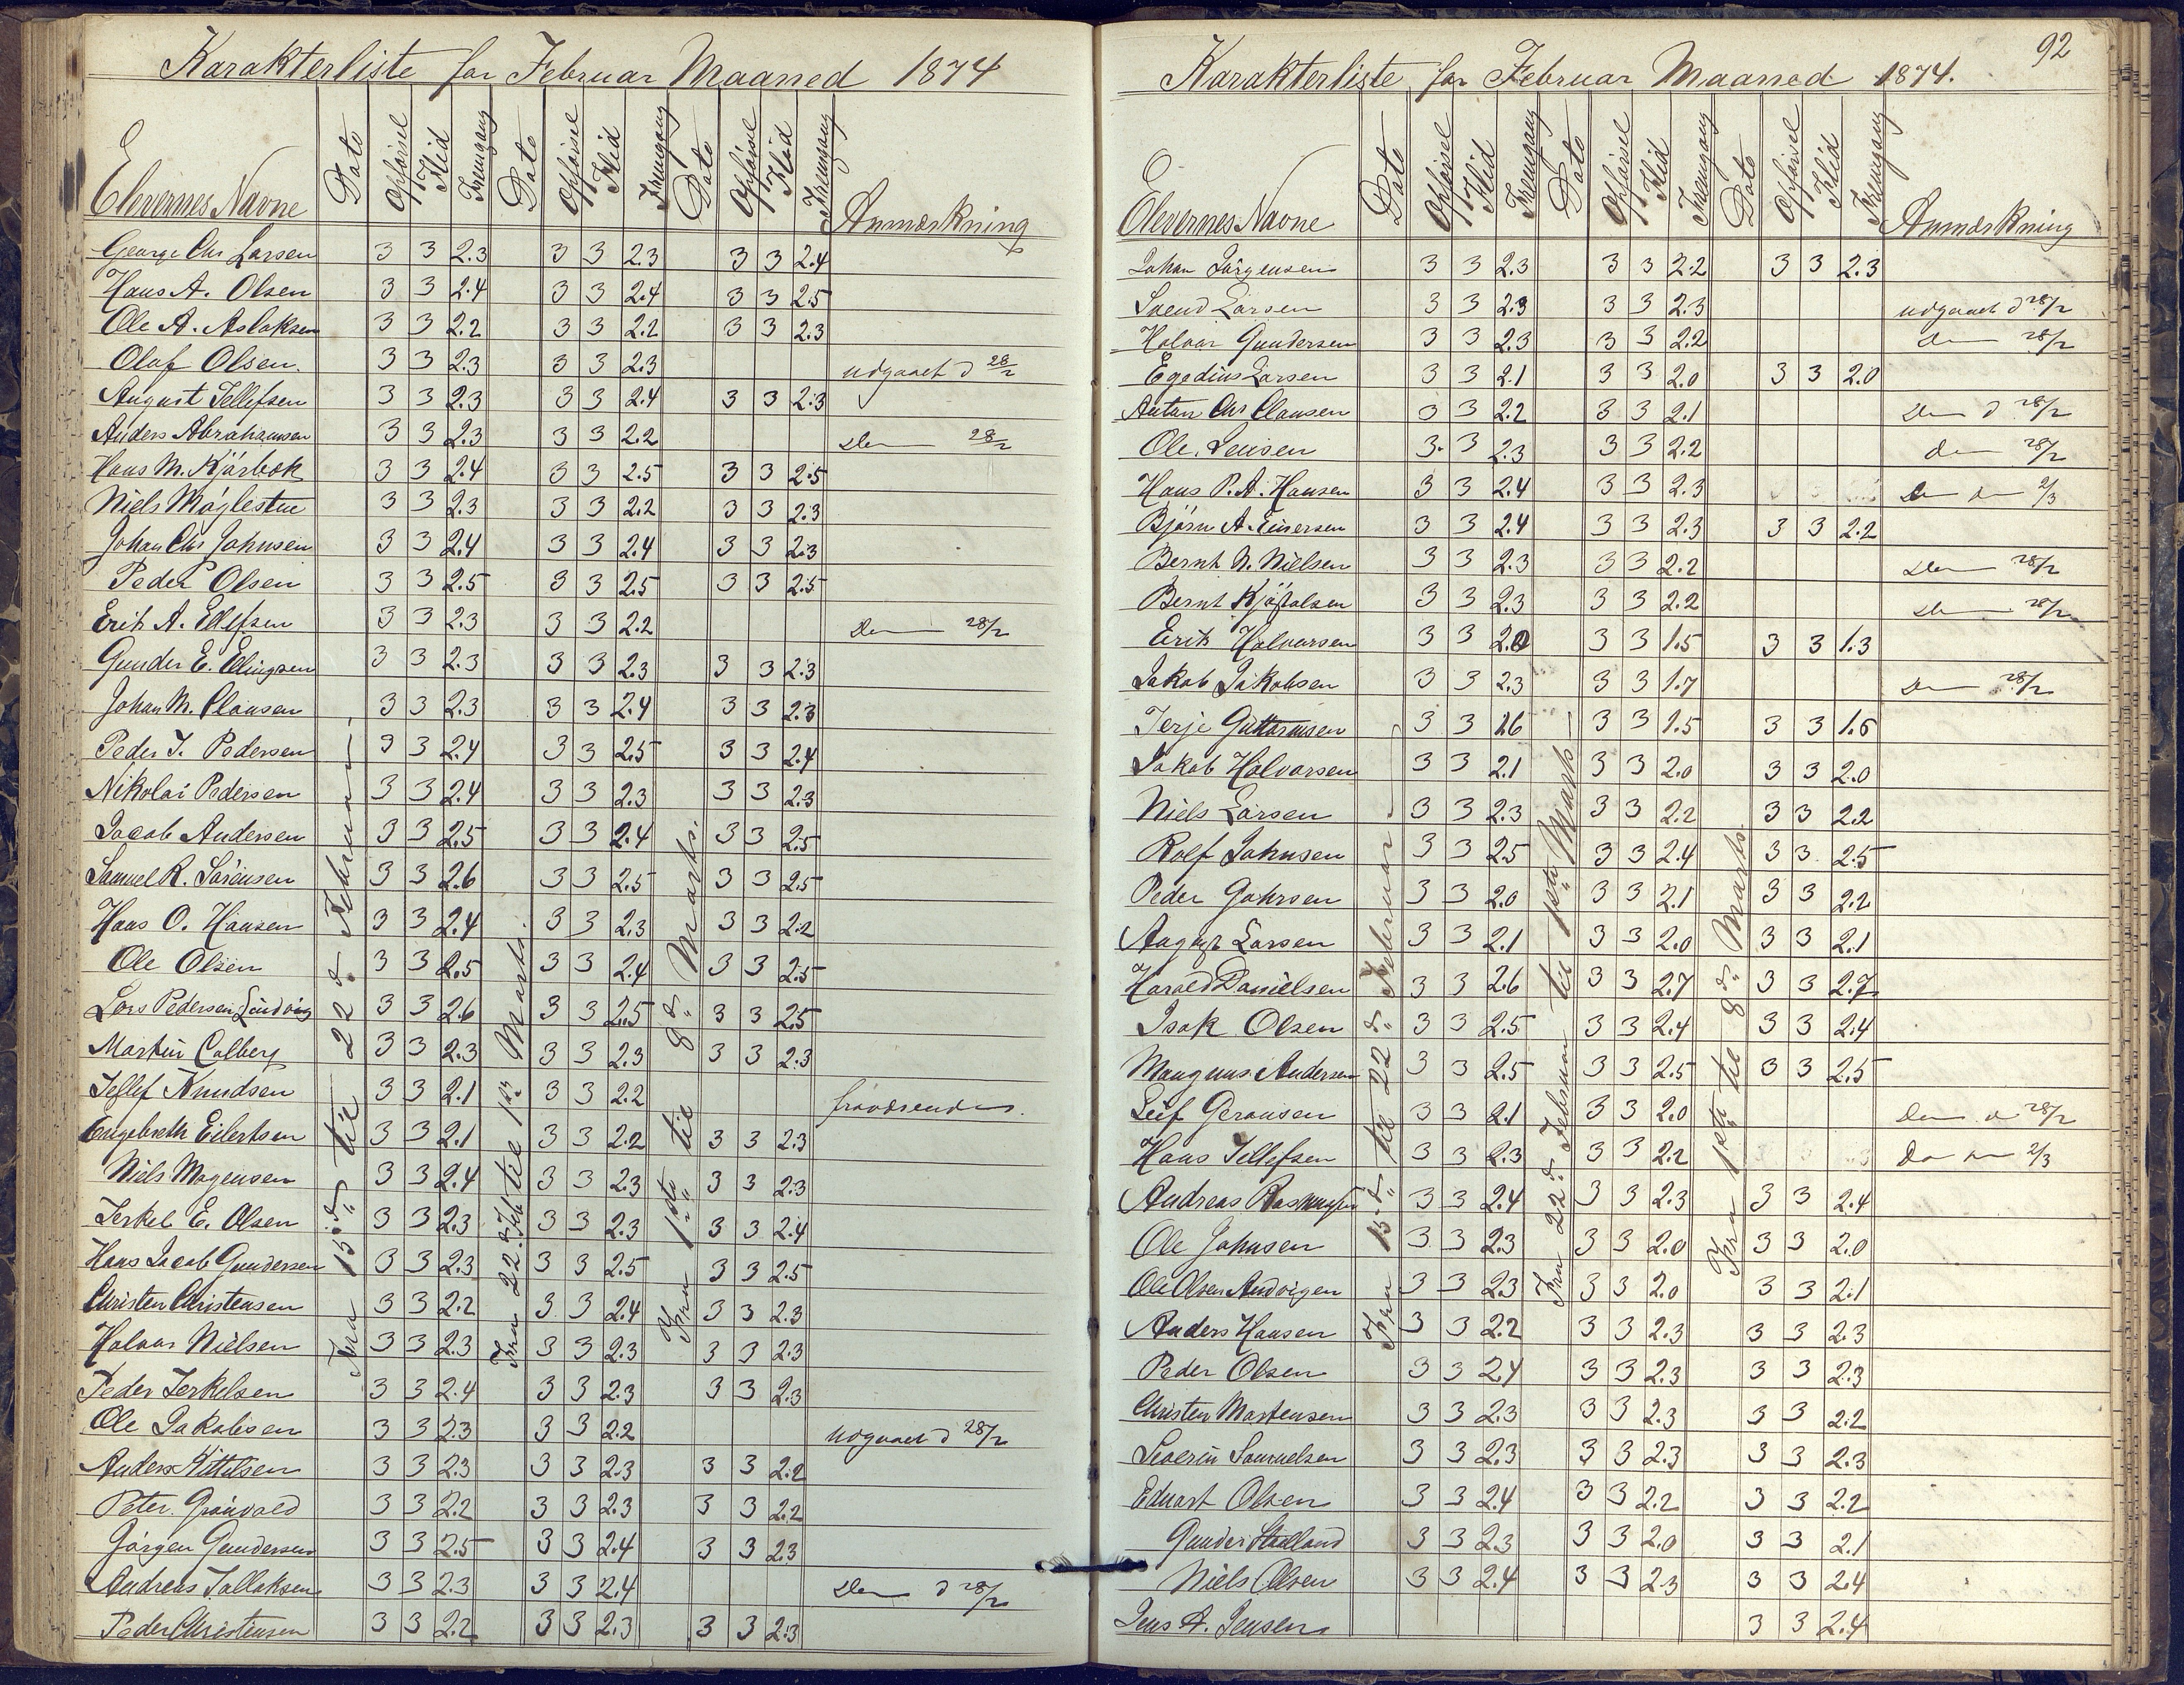 Karakterliste for Februar Maaned 1874
Elevernes Navne Dato Opførsel Flid Fremgang Dato Opførsel Flid Fremgang Dato Opførsel Flid Fremgang Anmærkning
Fra 15de til 22de Februar
Fra 22de Feb til 1ste Marts.
Fra 1ste til 8de Marts.
George Chr Larsen 3 3 2.3 3 3 2.3 3 3 2.4
Hans A. Olsen 3 3 2.4 3 3 2.4 3 3 2.5
Ole A. Aslaksen 3 3 2.2 3 3 2.2 3 3 2.3
Olaf Olsen. 3 3 2.3 3 3 2.3 udgaaet d 28/2
August Tellefsen 3 3 2.3 3 3 2.4 3 3 2.3
Anders Abrahamsen 3 3 2.3 3 3 2.2 do 28/2
Hans M. Kjärbok 3 3 2.4 3 3 2.5 3 3 2.5
Niels Möglestue 3 3 2.3 3 3 2.2 3 3 2.3
Johan Chr Johnsen 3 3 2.4 3 3 2.4 3 3 2.3
Peder Olsen 3 3 2.5 3 3 2.5 3 3 2.5
Erik A. Ellefsen 3 3 2.3 3 3 2.2 do 28/2
Gunder E. Elingsen 3 3 2.3 3 3 2.3 3 3 2.3
Johan M. Clausen 3 3 2.3 3 3 2.4 3 3 2.3
Peder J. Pedersen 3 3 2.4 3 3 2.5 3 3 2.4
Nikolai Pedersen 3 3 2.4 3 3 2.3 3 3 2.3
Jacob Andersen 3 3 2.5 3 3 2.4 3 3 2.5
Samuel R. Sörensen 3 3 2.6 3 3 2.5 3 3 2.5
Hans O. Hansen 3 3 2.4 3 3 2.3 3 3 2.2
Ole Olsen 3 3 2.5 3 3 2.4 3 3 2.5
Lars Pedersen Lindvig 3 3 2.6 3 3 2.5 3 3 2.5
Martin Colberg 3 3 2.3 3 3 2.3 3 3 2.3
Tellef Knudsen 3 3 2.1 3 3 2.2 fraværende.
Engebreth Eilertsen 3 3 2.1 3 3 2.2 3 3 2.3
Niels Mogensen 3 3 2.4 3 3 2.3 3 3 2.3
Terkel E. Olsen 3 3 2.3 3 3 2.3 3 3 2.4
Hans Jacob Gundersen 3 3 2.3 3 3 2.5 3 3 2.5
Christen Christensen 3 3 2.2 3 3 2.4 3 3 2.3
Halvor Nielsen 3 3 2.3 3 3 2.3 3 3 2.3
Peder Terkelsen 3 3 2.4 3 3 2.3 3 3 2.3
Ole Jakobsen 3 3 2.3 3 3 2.2 udgaaet d 28/2
Anders Kittelsen 3 3 2.3 3 3 2.3 3 3 2.2
Peter Grönvold 3 3 2.2 3 3 2.3 3 3 2.2
Jörgen Gundersen 3 3 2.5 3 3 2.4 3 3 2.3
Andreas Tallaksen 3 3 2.3 3 3 2.4 do d 28/2
Peder Christensen 3 3 2.2 3 3 2.3 3 3 2.3
92
Karakterliste for Februar Maaned 1874.
Elevernes Navne Dato Opførsel Flid Fremgang Dato Opførsel Flid Fremgang Dato Opførsel Flid Fremgang Anmærkning
Fra 15de til 22de Februar
Fra 22de Februar til 1ste Marts
Fra 1ste til 8de Marts.
Johan Jörgensen 3 3 2.3 3 3 2.2 3 3 2.3
Svend Larsen 3 3 2.3 3 3 2.3 udgaaet d 28/2
Halvor Gundersen 3 3 2.3 3 3 2.2 do 28/2
Egedius Larsen 3 3 2.1 3 3 2.0 3 3 2.0
Anton Chr Clausen 3 3 2.2 3 3 2.1 do d 28/2
Ole Jensen 3 3 2.3 3 3 2.2 do 28/2
Hans P. A. Hansen 3 3 2.4 3 3 2.3 do 2/3
Björn A. Einersen 3 3 2.4 3 3 2.3 3 3 2.2
Bernt N. Nielsen 3 3 2.3 3 3 2.2 do 28/2
Bernt Kjöstolsen 3 3 2.3 3 3 2.2 do 28/2
Erik Halvorsen 3 3 2.0 3 3 1.5 3 3 1.3
Jakob Jakobsen 3 3 2.3 3 3 1.7 do 28/2
Terje Guttormsen 3 3 1.6 3 3 1.5 3 3 1.6
Jakob Halvorsen 3 3 2.1 3 3 2.0 3 3 2.0
Niels Larsen 3 3 2.3 3 3 2.2 3 3 2.2
Rolf Johnsen 3 3 2.5 3 3 2.4 3 3 2.5
Peder Johnsen 3 3 2.0 3 3 2.1 3 3 2.2
August Larsen 3 3 2.1 3 3 2.0 3 3 2.1
Harald Danielsen 3 3 2.6 3 3 2.7 3 3 2.7
Isak Olsen 3 3 2.5 3 3 2.4 3 3 2.4
Maugnus Andersen 3 3 2.5 3 3 2.5 3 3 2.5
Leif Geransen 3 3 2.1 3 3 2.0 do d 28/2
Hans Tellefsen 3 3 2.3 3 3 2.2 do 2/3
Andreas Rasmussen 3 3 2.4 3 3 2.3 3 3 2.4
Ole Johnsen 3 3 2.3 3 3 2.0 3 3 2.0
Ole Olsen Andvigen 3 3 2.3 3 3 2.0 3 3 2.1
Anders Hansen 3 3 2.2 3 3 2.3 3 3 2.3
Peder Olsen 3 3 2.4 3 3 2.3 3 3 2.3
Christen Mortensen 3 3 2.3 3 3 2.3 3 3 2.2
Severin Samuelsen 3 3 2.3 3 3 2.3 3 3 2.3
Eduart Olsen 3 3 2.4 3 3 2.2 3 3 2.2
Gunder Stalland 3 3 2.3 3 3 2.0 3 3 2.1
Niels Olsen 3 3 2.4 3 3 2.3 3 3 2.4
Jens A. Jensen 3 3 2.4